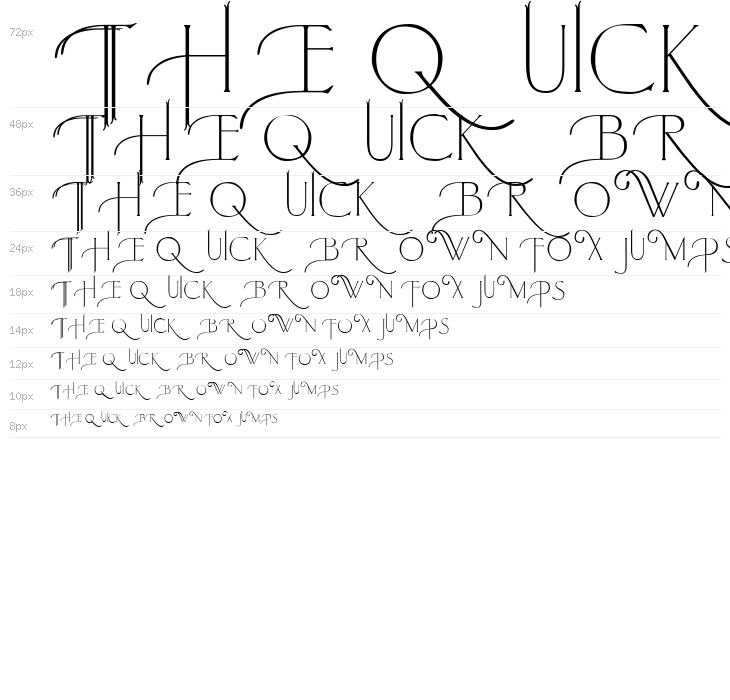 72px THE QUICK
48px THE QUICK BR
36px THE QUICK BROWN
24px THE QUICK BROWN FOX JUMPS
18px THE QUICK BROWN FOX JUMPS
14px THE QUICK BROWN FOX JUMPS
12px THE QUICK BROWN FOX JUMPS
10px THE QUICK BROWN FOX JUMPS
8px THE QUICK BROWN FOX JUMPS